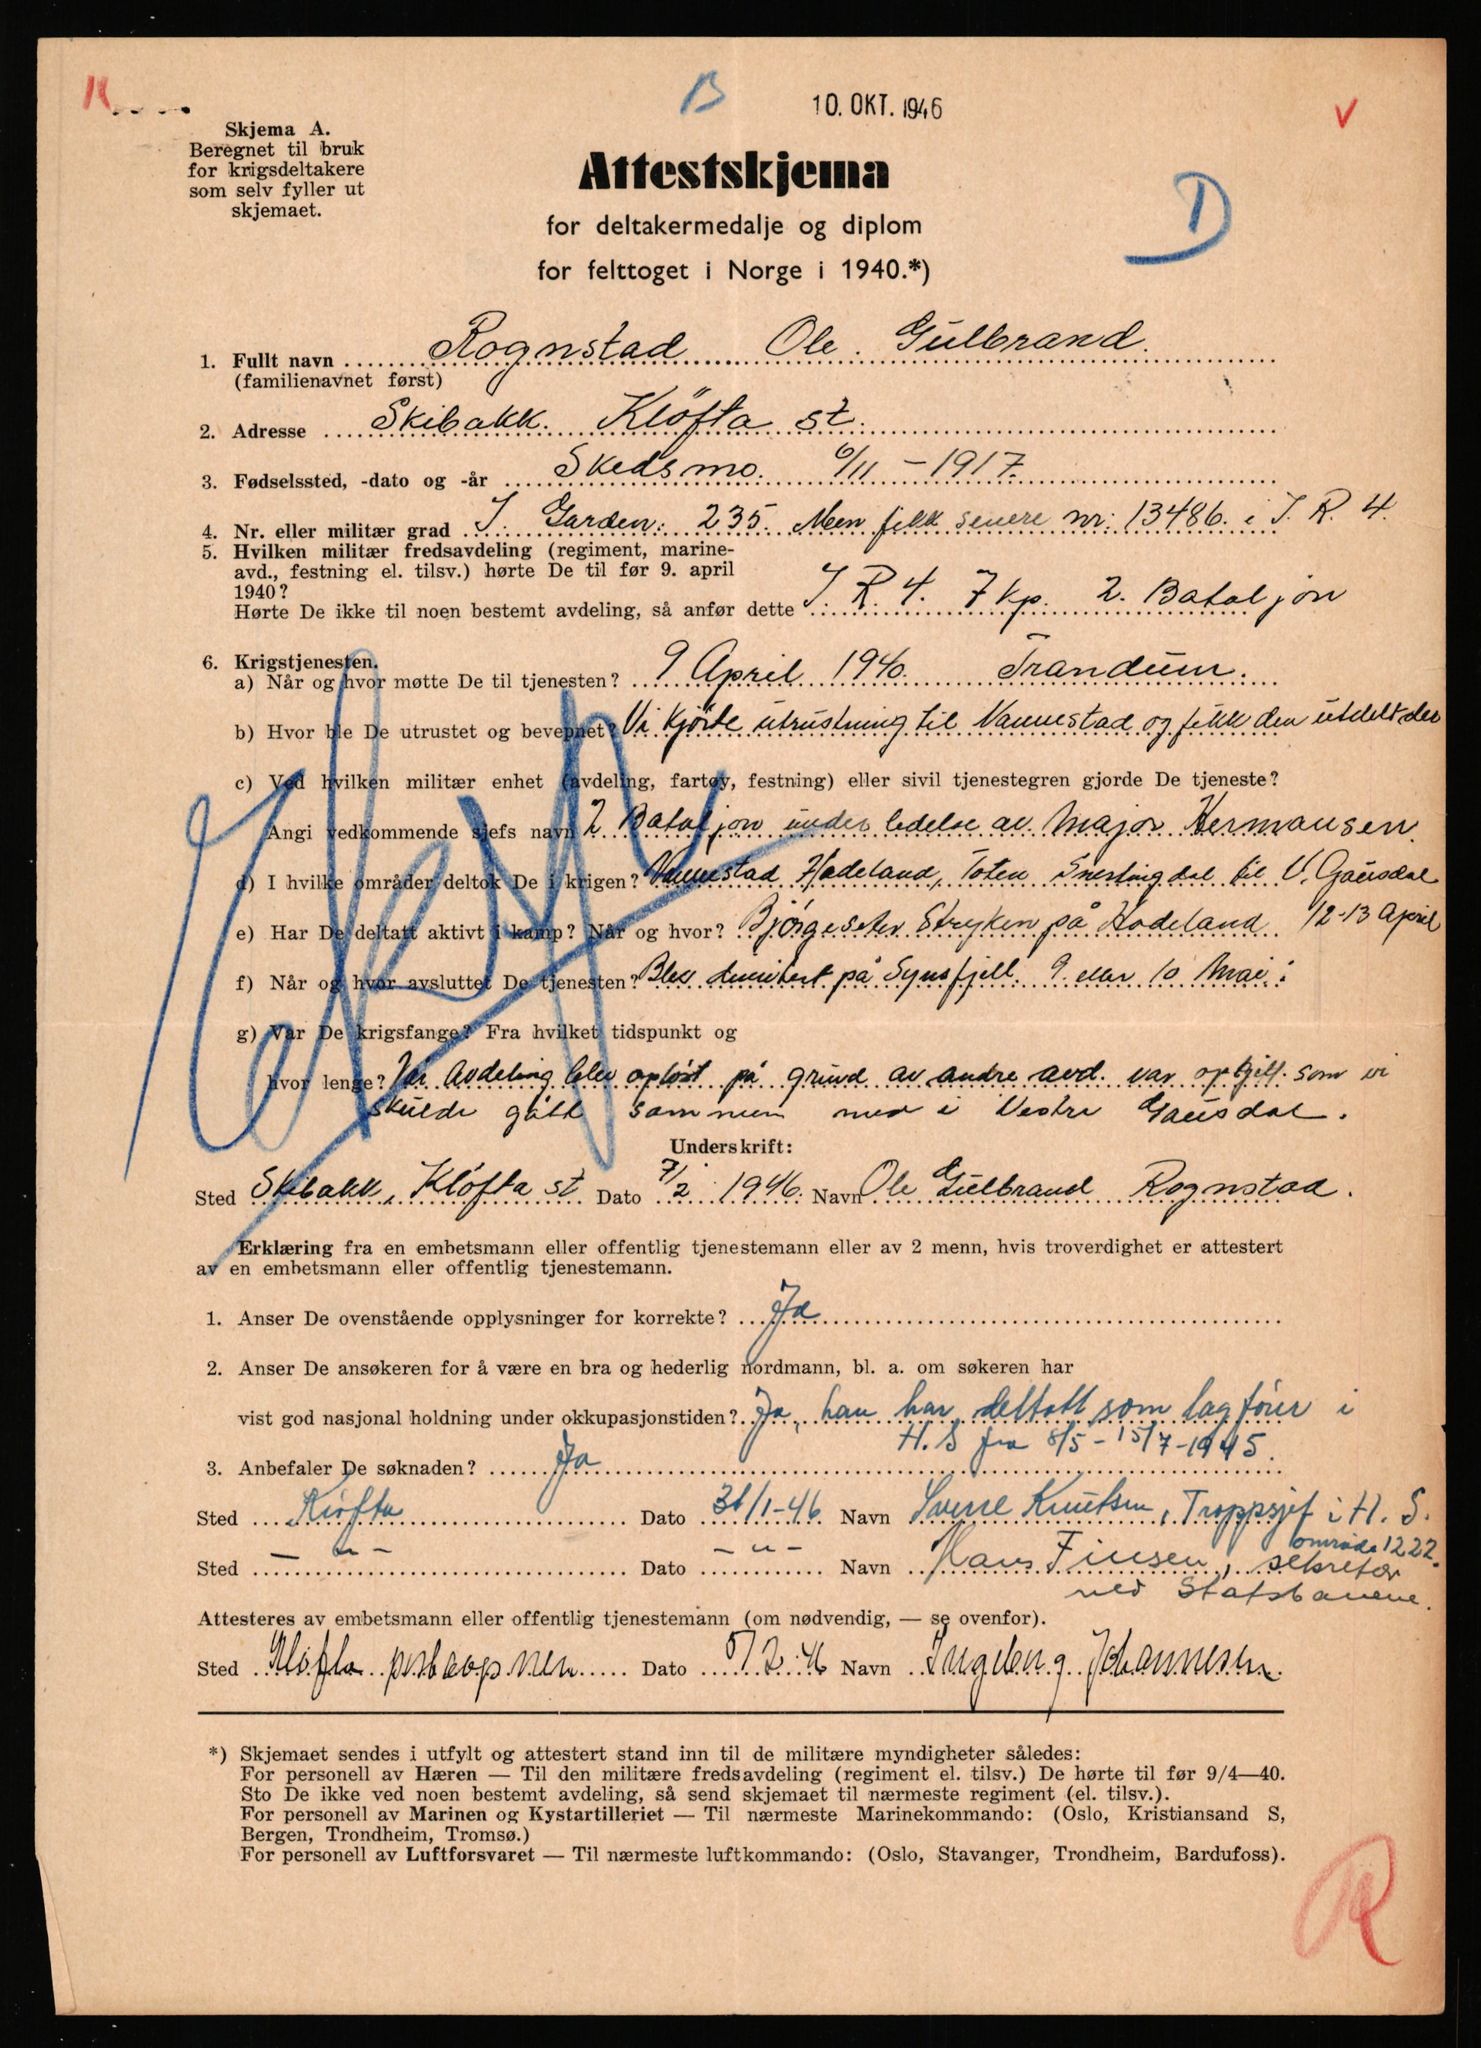 B
10. OKT. 1946
V
Skjema A.
Beregnet til bruk
for krigsdeltakere
som selv fyller ut
skjemaet.
Attestskjema
for deltakermedalje og diplom
for felttoget i Norge i 1940.*)
D
1. Fullt navn Rognstad Ole Gulbrand.
(familienavnet først)
2. Adresse Skibakk. Kløfta st.
3. Fødselssted, -dato og -år Skedsmo. 6/11 - 1917.
4. Nr. eller militær grad I. Garden: 235. Men fikk senere nr: 13486. i I. R. 4.
5. Hvilken militær fredsavdeling (regiment, marine-
avd., festning el. tilsv.) hørte De til før 9. april
1940?
Hørte De ikke til noen bestemt avdeling, så anfør dette I. R. 4. 7 kp. 2. Bataljon
6. Krigstjenesten.
a) Når og hvor møtte De til tjenesten? 9 April 1940. Trandum.
b) Hvor ble De utrustet og bevepnet? Vi kjørte utrustning til Vannestad og fikk den utdelt der
c) Ved hvilken militær enhet (avdeling, fartøy, festning) eller sivil tjenestegren gjorde De tjeneste?
Angi vedkommende sjefs navn 2 Bataljon under ledelse av Major Hermansen
d) I hvilke områder deltok De i krigen? Vannestad Hadeland, Toten Snertingdal til V. Gausdal
e) Har De deltatt aktivt i kamp? Når og hvor? Bjørgeseter Stryken på Hadeland 12-13 April
f) Når og hvor avsluttet De tjenesten? Blev dimitert på Synsfjell 9. eller 10 Mai.
g) Var De krigsfange? Fra hvilket tidspunkt og
hvor lenge? Vår Avdeling blev opløst på grund av andre avd. var opgitt som vi
skulde gått sammen med i Vestre Gausdal.
Underskrift:
Sted Skibakk, Kløfta st Dato 7/2 1946. Navn Ole Gulbrand Rognstad.
Erklæring fra en embetsmann eller offentlig tjenestemann eller av 2 menn, hvis troverdighet er attestert
av en embetsmann eller offentlig tjenestemann.
1. Anser De ovenstående opplysninger for korrekte? Ja
2. Anser De ansøkeren for å være en bra og hederlig nordmann, bl. a. om søkeren har
vist god nasjonal holdning under okkupasjonstiden? Ja, han har deltatt som lagfører i
H. S fra 8/5 - 15/7 - 1945.
3. Anbefaler De søknaden? Ja
Sted Kløfta Dato 31/1-46 Navn Sverre Knutsen, Troppsjef i H. S.
område 1222.
Sted — " — Dato — " — Navn Hans Finsen, sekretær
ved Statsbanene.
Attesteres av embetsmann eller offentlig tjenestemann (om nødvendig, — se ovenfor).
Sted Kløfta postaapneri Dato 7/2 46 Navn Ingeborg Johannesen
*) Skjemaet sendes i utfylt og attestert stand inn til de militære myndigheter således:
For personell av Hæren — Til den militære fredsavdeling (regiment el. tilsv.) De hørte til før 9/4—40.
Sto De ikke ved noen bestemt avdeling, så send skjemaet til nærmeste regiment (el. tilsv.).
For personell av Marinen og Kystartilleriet — Til nærmeste Marinekommando: (Oslo, Kristiansand S,
Bergen, Trondheim, Tromsø.)
For personell av Luftforsvaret — Til nærmeste luftkommando: (Oslo, Stavanger, Trondheim, Bardufoss).
R